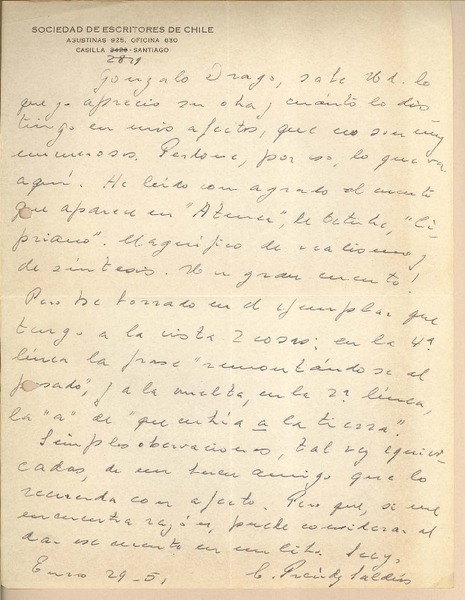 SOCIEDAD DE ESCRITORES DE CHILE
AGUSTINAS 925, OFICINA 630
CASILLA 2429 - SANTIAGO
Gonzalo Drago, sabe Ud. lo
que yo aprecio su obra y cuánto lo dis-
tingo en mis afectos, que no son muy
numerosos. Perdone, por eso, lo que va
aquí. He leído con agrado el cuento
que aparece en "Atenea", de Octubre, "Ci-
priano". Magnífico de realismo y
de síntesis. Un gran cuento!
Pero he borrado en el ejemplar que
tengo a la vista 2 cosas: en la 4ª
línea la frase "remontándose al
pasado", y a la vuelta, en la 2ª línea,
la "a" de "que a la tierra".
Simples observaciones, tal vez equivo-
cadas, de un buen amigo que lo
recuerda con afecto. Pero que, si me
encuentra razón, puede considerar al
dar ese cuento en un libro. Suyo,
Enero 29-51 C. Préndez Saldías